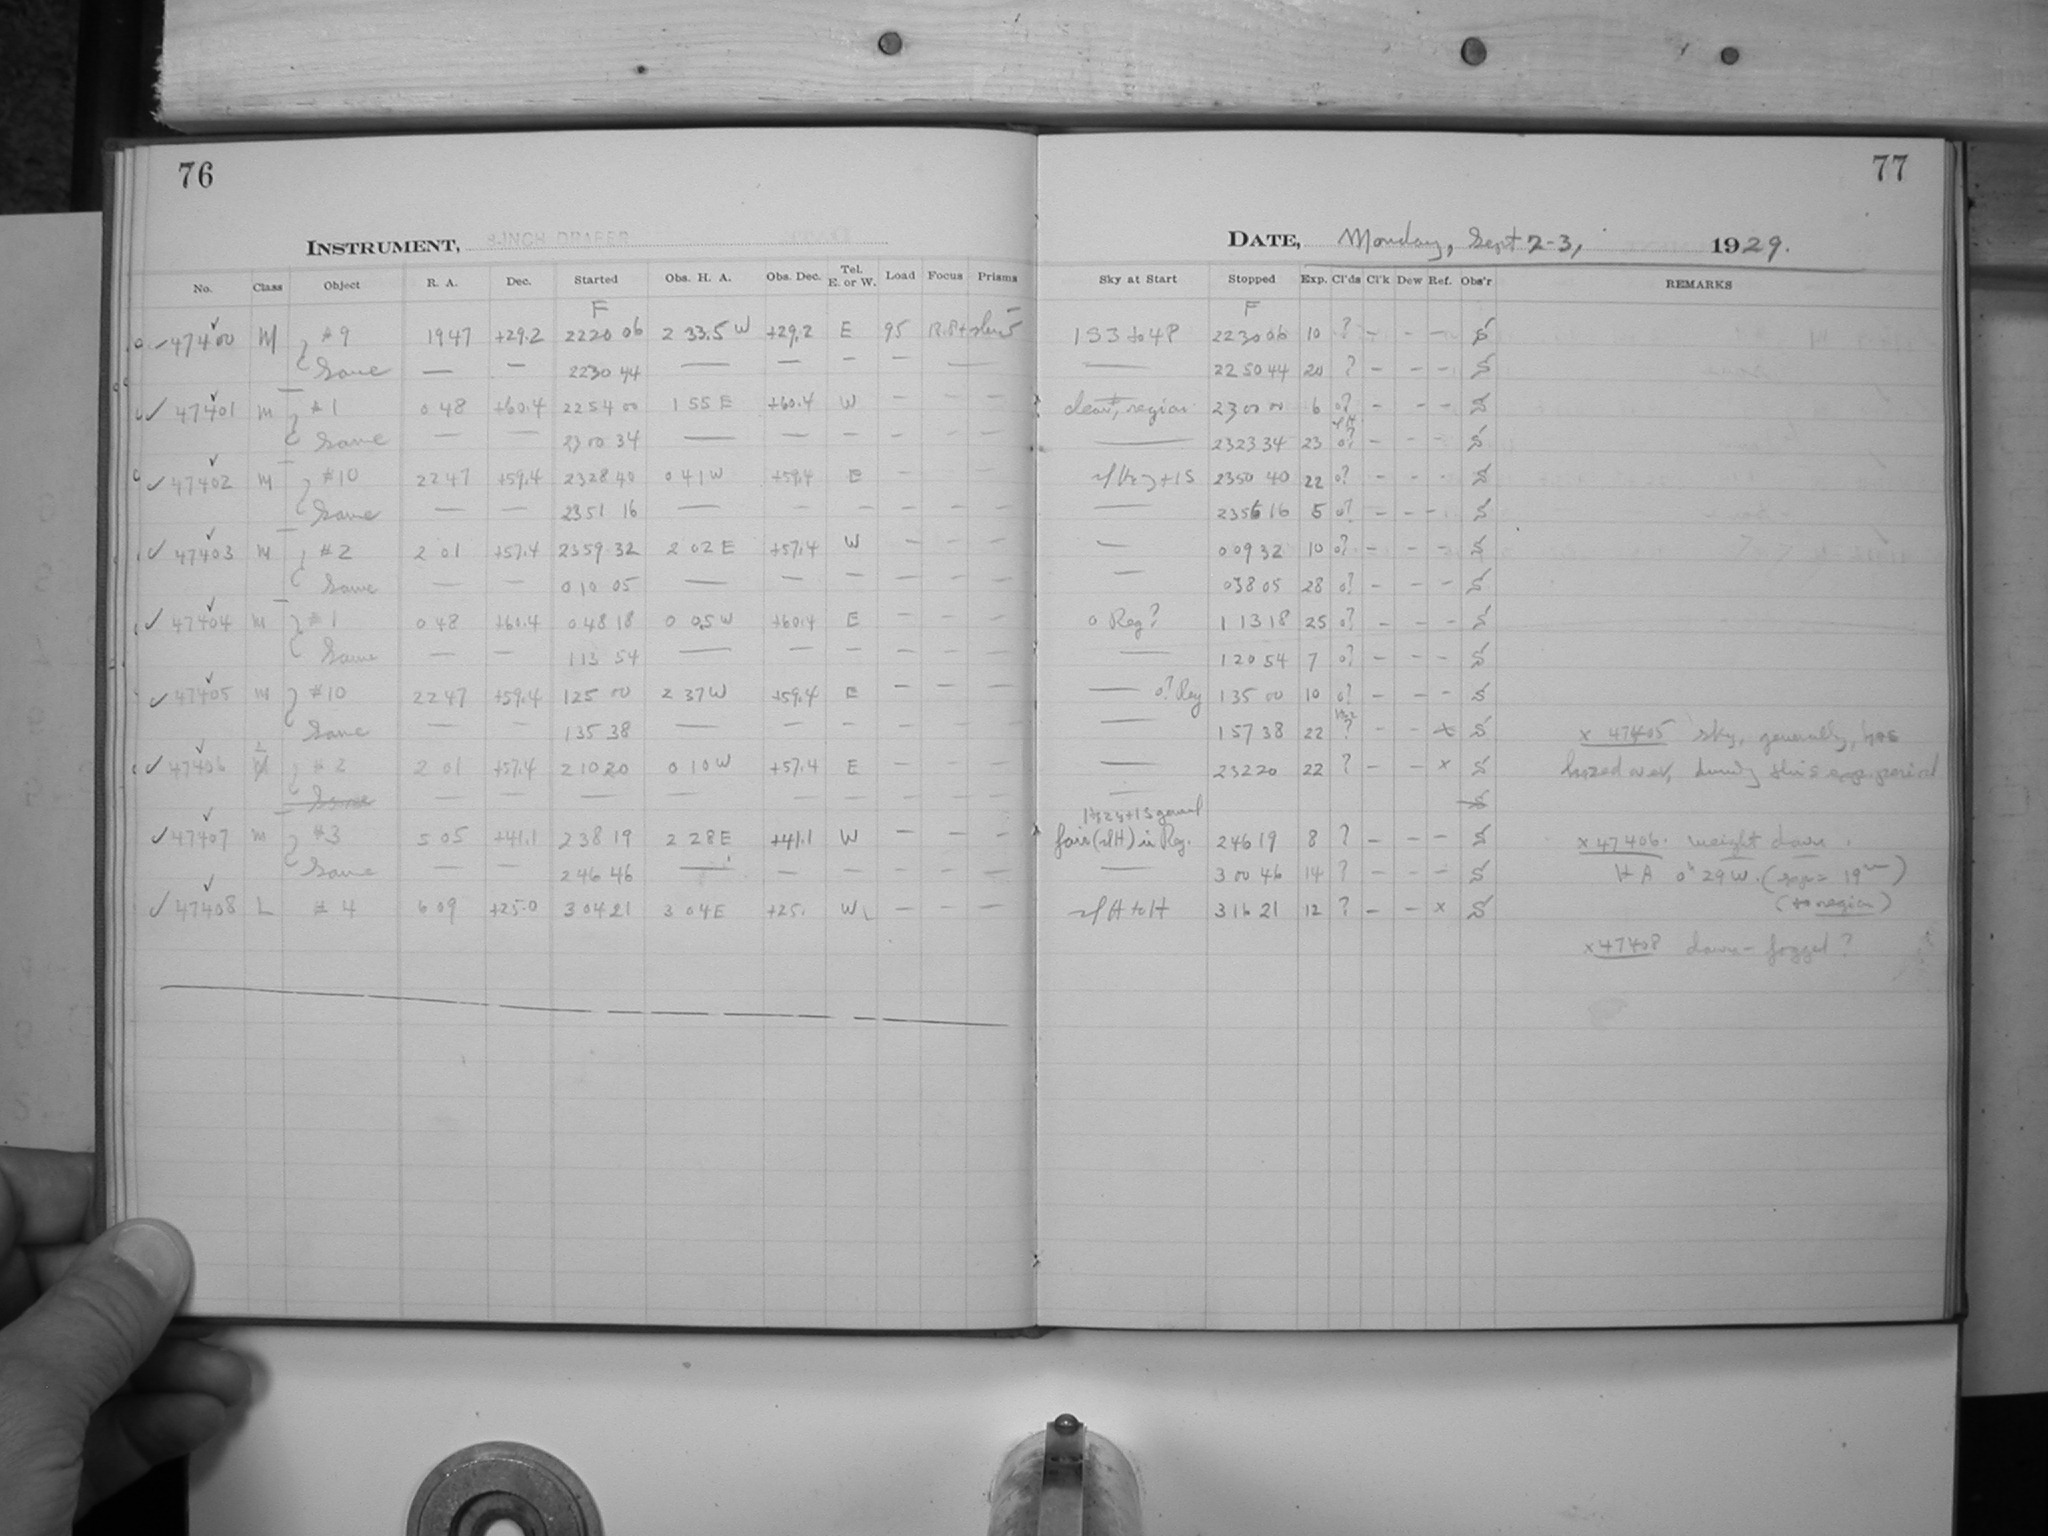 76
77
INSTRUMENT, 8-INCH DRAPER
DATE, Monday, Sept 2-3, 1929.
No. Class Object R. A. Dec. Started Obs. H. A. Obs. Dec. Tel. E. or W. Load Focus Prisms Sky at Start Stopped Exp. Cl'ds Cl'k Dew Ref. Obs'r REMARKS
F F
47400 M #9 1947 +29.2 2220 06 2 33.5 W +29.2 E 95 1S3 to 4P 2230 06 10 ? - - - S
Same — — 2230 44 — — — — — — 2250 44 20 ? - - - S
✓ 47401 M #1 0 48 +60.4 2254 00 1 55 E +60.4 W — — — clear, region 2300 00 6 0? - - - S
Same — — 2300 34 — — — — — — — 2323 34 23 0? - - - S
✓ 47402 M #10 2247 +59.4 2328 40 0 41 W +59.4 E — — — +1S 2350 40 22 0? - - - S
Same — — 2351 16 — — — — — — — 2356 16 5 0? - - - S
✓ 47403 M #2 2 01 +57.4 2359 32 2 02 E +57.4 W — — — — 0 09 32 10 0? - - - S
Same — — 0 10 05 — — — — — — — 0 38 05 28 0? - - - S
✓ 47404 M #1 0 48 +60.4 0 48 18 0 05 W +60.4 E — — — 0 Reg? 1 13 18 25 0? - - - S
Same — — 1 13 54 — — — — — — — 1 20 54 7 0? - - - S
✓ 47405 M #10 2247 +59.4 1 25 00 2 37 W +59.4 E — — — — 0? Reg 1 35 00 10 0? - - - S
Same — — 1 35 38 — — — — — — — 1 57 38 22 ? - - x S x 47405 sky, generally, has
✓ 47406 L #2 2 01 +57.4 2 10 20 0 10 W +57.4 E — — — — 2 32 20 22 ? - - x S hazed over, during this exp. period
Same — — — — — — — — — —
✓ 47407 M #3 5 05 +41.1 2 38 19 2 28 E +41.1 W — — — fair (H) in Reg. 2 46 19 8 ? - - - S x 47406. weight down.
Same — — 2 46 46 — — — — — — — 3 00 46 14 ? - - - S HA 0h 29 W. (exp = 19m)
✓ 47408 L #4 6 09 +25.0 3 04 21 3 04 E +25. W — — — H to H 3 16 21 12 ? - - x S (to region)
x 47408 dawn - fogged?